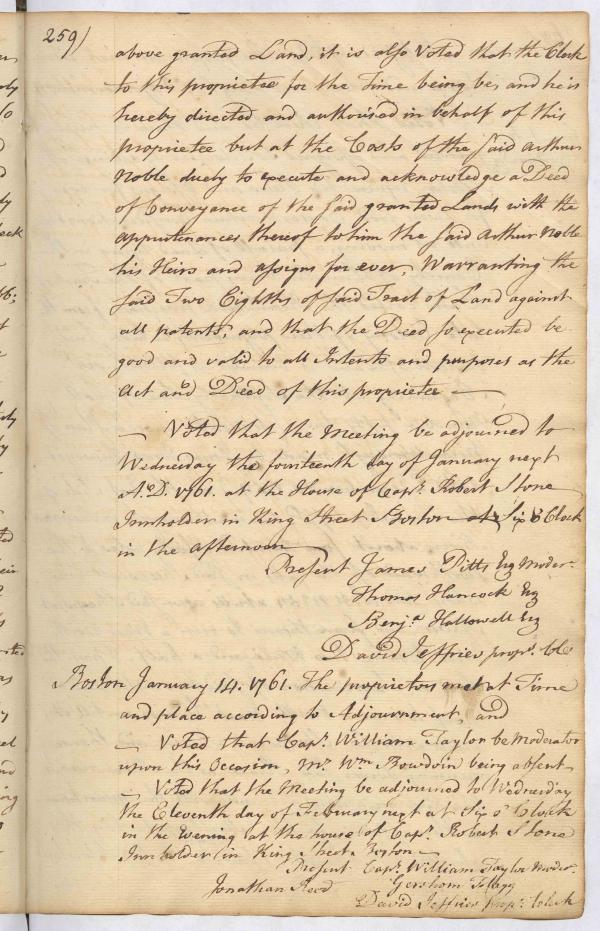 259)
above granted Land; it is also Voted that the Clerk
to this proprietee for the Time being be, and he is
hereby directed and authorised in behalf of this
proprietee but at the Costs of the said Arthur
Noble duely to execute and acknowledge a Deed
of Conveyance of the said granted Lands with the
appurtenances thereof to him the said Arthur Noble
his Heirs and assigns for ever, Warranting the
said Two Eighths of said Tract of Land against
all patents; and that the Deed so executed be
good and valid to all Intents and purposes as the
Act and Deed of this proprietee —
— Voted that the Meeting be adjourned to
Wednesday the fourteenth day of January next
A.D. 1761. at the House of Capt. Robert Stone
Innholder in King Street Boston at Six o'Clock
in the afternoon
Present James Pitts Esq Moder.
Thomas Hancock Esq
Benja. Hallowell Esq
David Jeffries propr. Cle
Boston January 14. 1761. The proprietors met at Time
and place according to Adjournment, and
— Voted that Capt. William Taylor be Moderator
upon this Occasion, Mr. Wm Bowdoin being absent
— Voted that the Meeting be adjourned to Wednesday
the Eleventh day of February next at Six o'Clock
in the Evening at the house of Capt. Robert Stone
Innholder in King Street Boston
Present Capt. William Taylor Moder.
Jonathan Reed Gershom Flagg
David Jeffries propr. Clerk